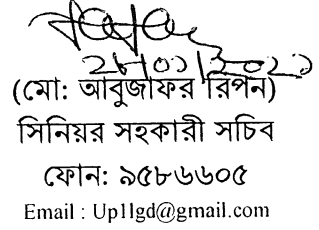 ২৮/০১/২০২১
(মো: আবুজাফর রিপন)
সিনিয়র সহকারী সচিব
ফোন: ৯৫৮৬৬০৫
Email : Up1lgd@gmail.com